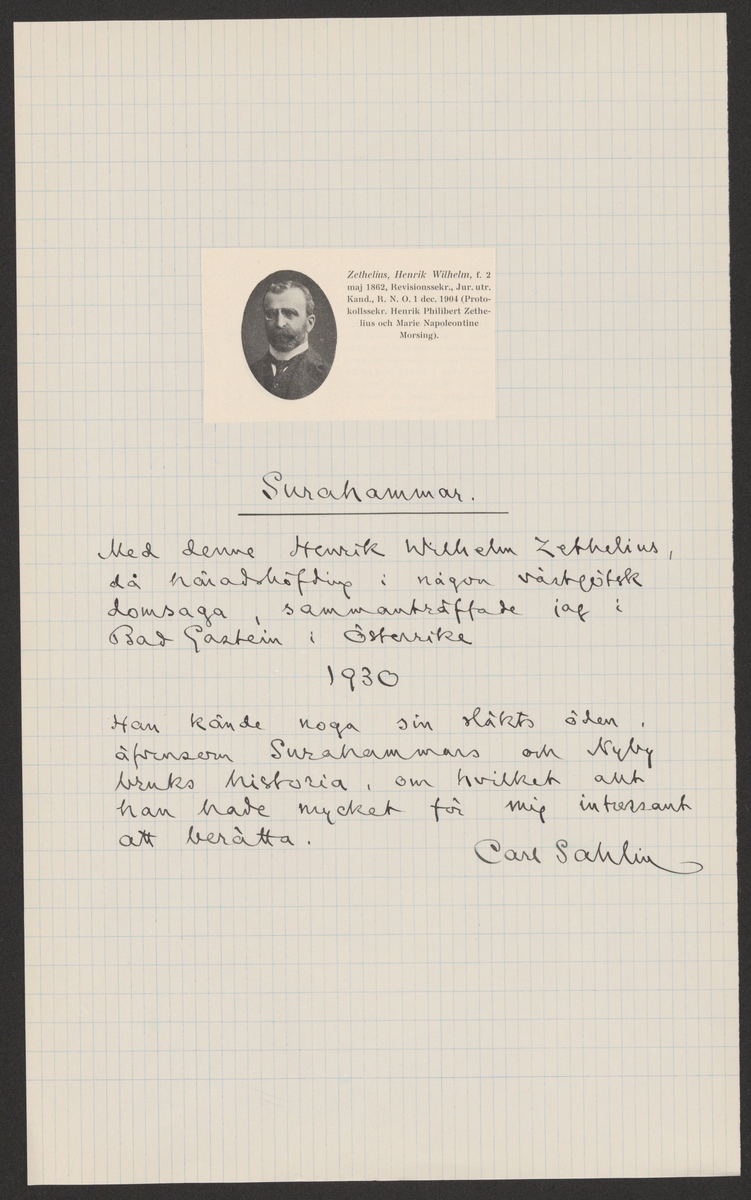 Zethelius, Henrik Wilhelm, f. 2
maj 1862, Revisionssekr., Jur. utr.
Kand., R. N. O. 1 dec. 1904 (Proto-
kollssekr. Henrik Philibert Zethe-
lius och Marie Napoleontine
Morsing).
Surahammar.
Med denne Henrik Wilhelm Zethelius,
då häradshöfding i någon västgötsk
domsaga, sammanträffade jag i
Bad Gastein i Österrike
1930
Han kände noga sin släkts öden,
äfvensom Surahammars och Nyby
bruks historia, om hvilket allt
han hade mycket för mig intressant
att berätta.
Carl Sahlin